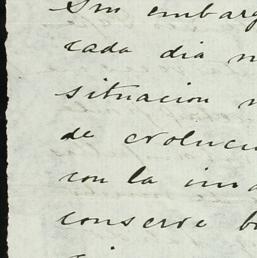 Sin embarg
cada dia n
situacion n
de evoluci
con la im
conserve b